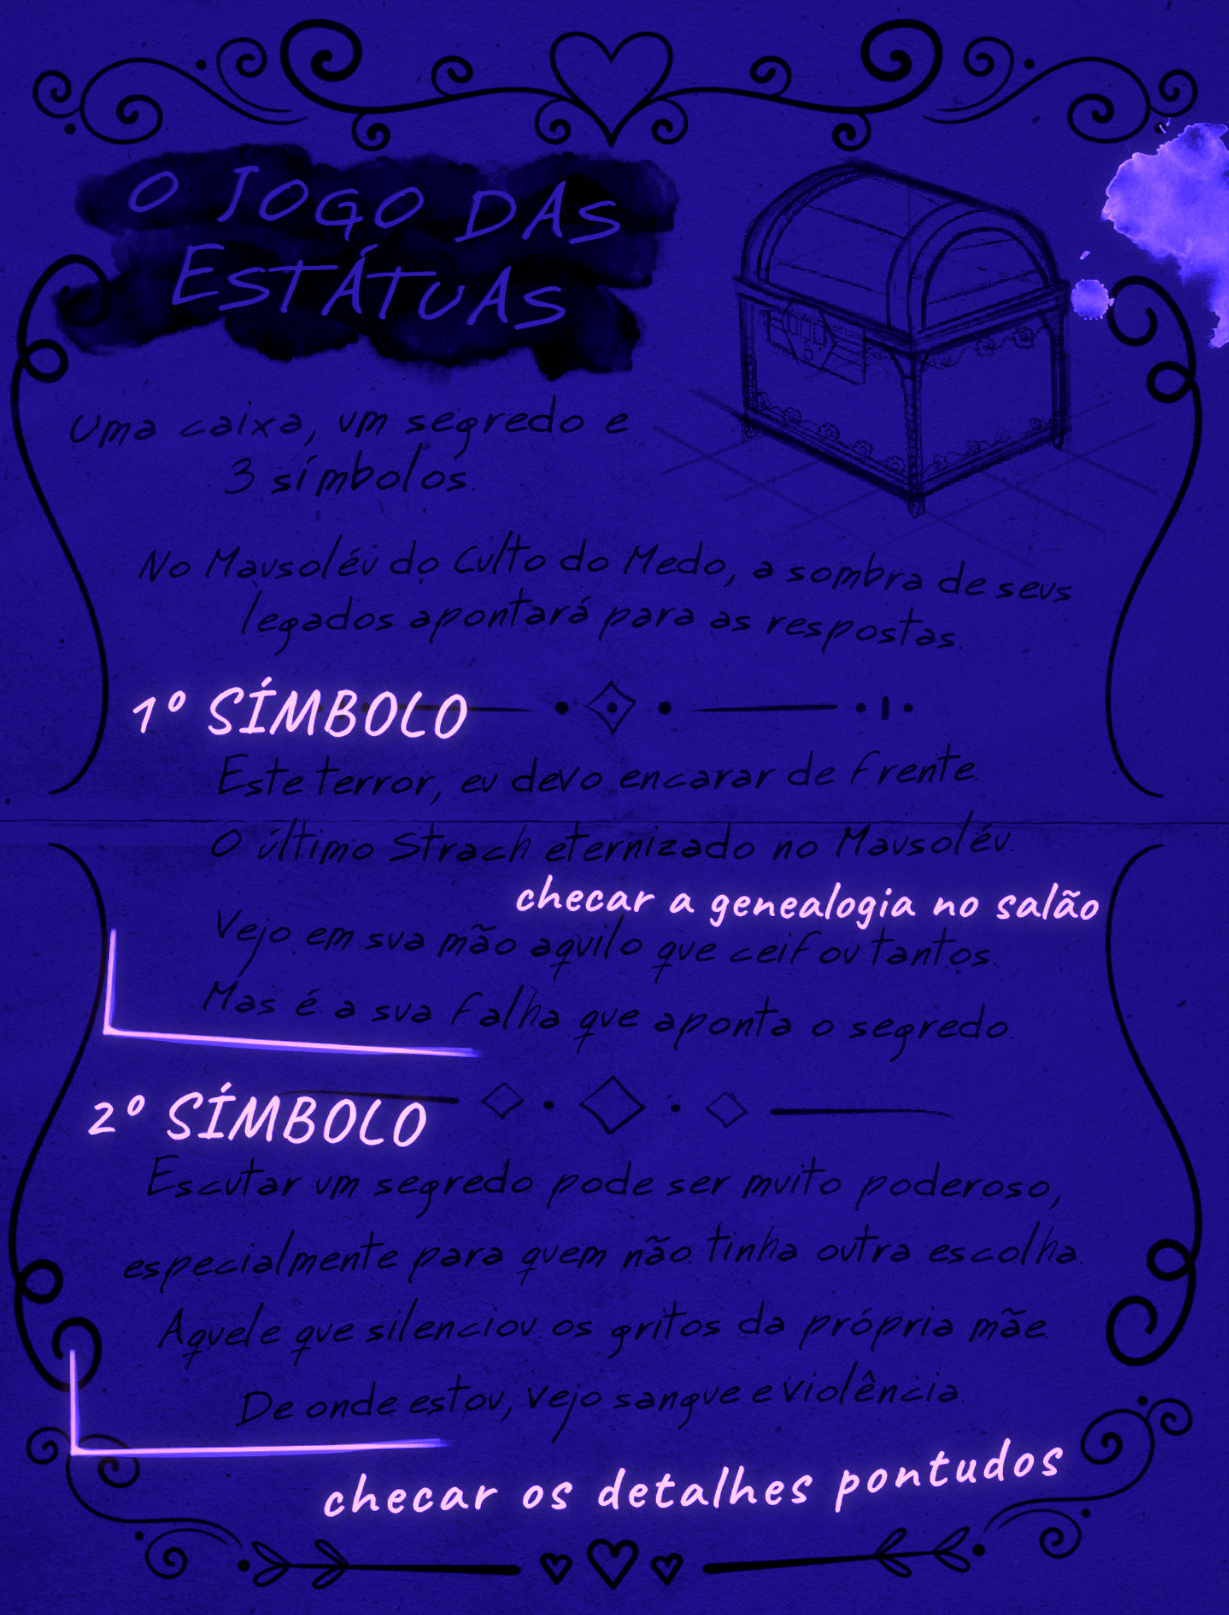 O JOGO DAS
ESTÁTUAS
Uma caixa, um segredo e
3 símbolos.
No Mausoléu do Culto do Medo, a sombra de seus
legados apontará para as respostas.
1º SÍMBOLO
Este terror, eu devo encarar de frente.
O último Strach eternizado no Mausoléu.
checar a genealogia no salão
Vejo em sua mão aquilo que ceifou tantos.
Mas é a sua falha que aponta o segredo.
2º SÍMBOLO
Escutar um segredo pode ser muito poderoso,
especialmente para quem não tinha outra escolha.
Aquele que silenciou os gritos da própria mãe.
De onde estou, vejo sangue e violência.
checar os detalhes pontudos